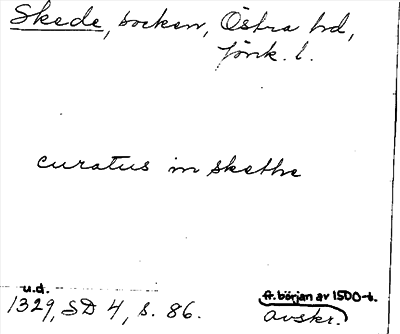 Skede, socken, Östra hd,
Jönk. l.
curatus in skethe
u.d.
fr. början av 1500-t.
1329, SD 4, s. 86.
avskr.